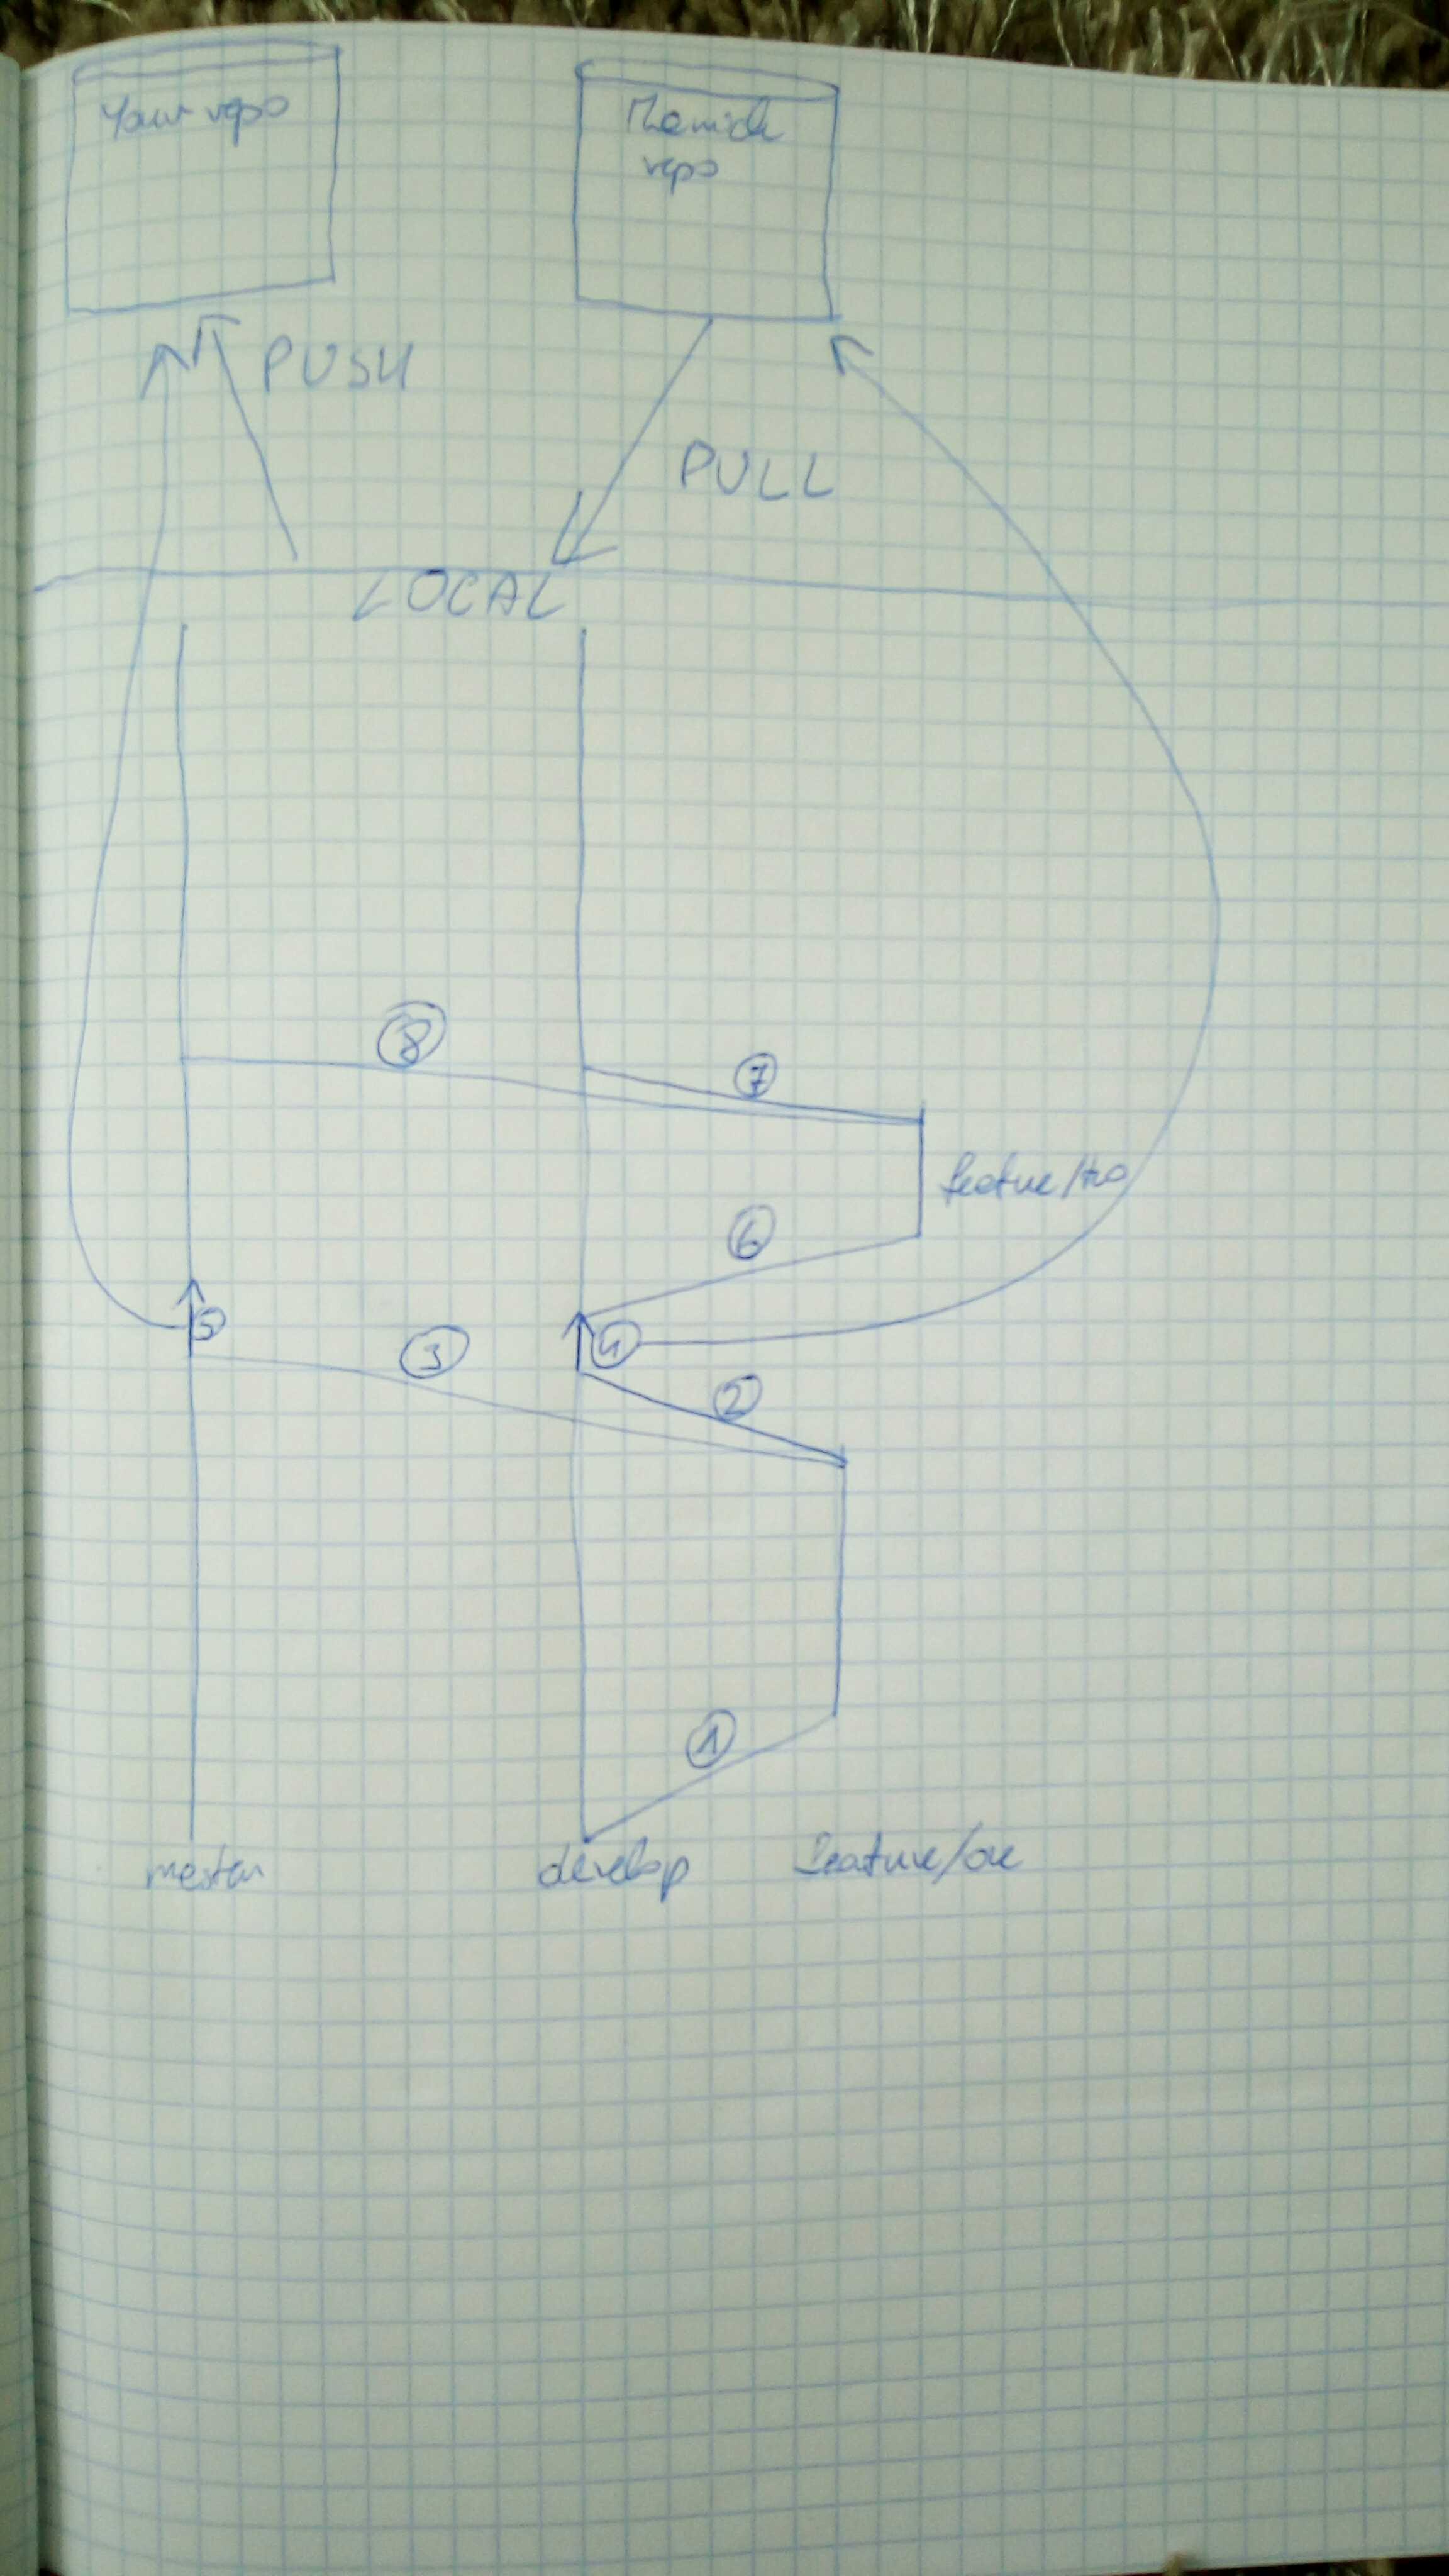 Your repo
repo
PUSH
PULL
LOCAL
8
7
feature/two
6
5
3
4
2
1
master
develop
feature/one